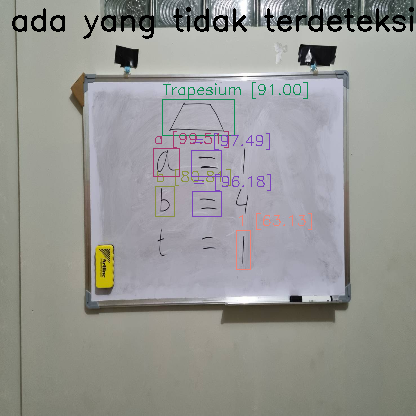 ada yang tidak terdeteksi
Trapesium [91.00]
a [99.51] = [97.49]
a = 1
= [96.18]
b = 4
t = 1